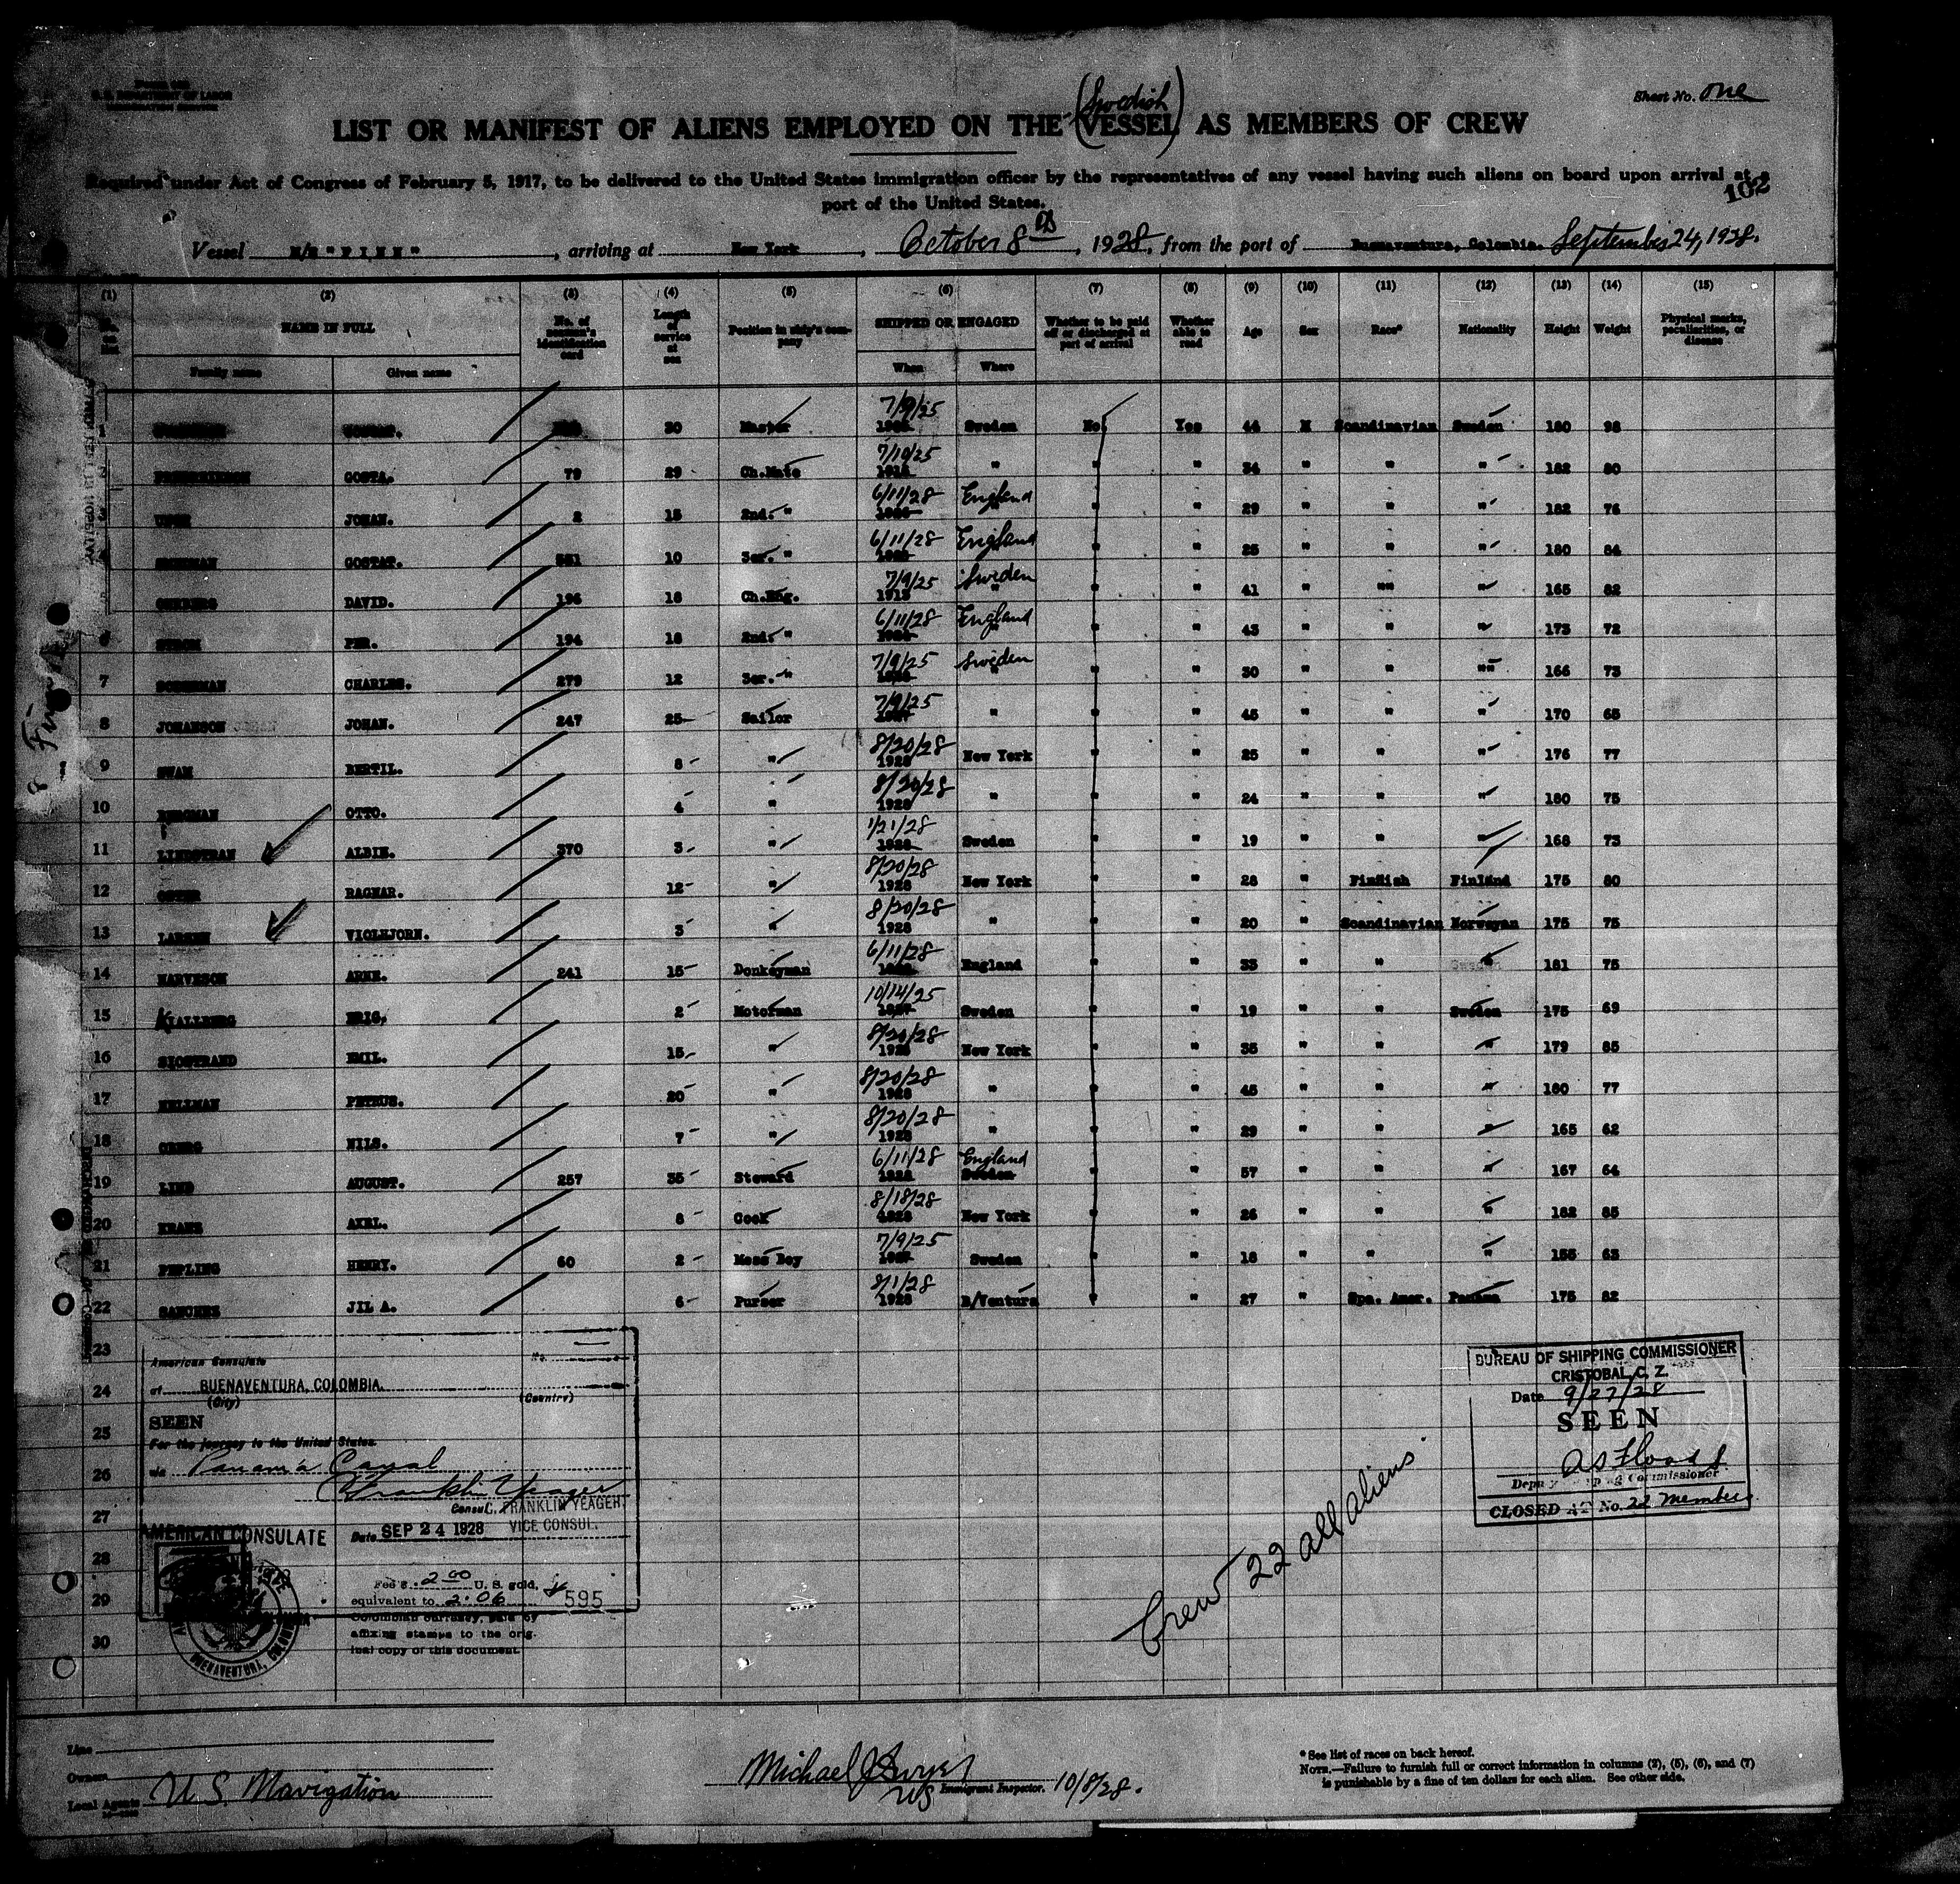 U.S. DEPARTMENT OF LABOR
Sheet No. one
(Swedish)
LIST OR MANIFEST OF ALIENS EMPLOYED ON THE VESSEL AS MEMBERS OF CREW
Required under Act of Congress of February 5, 1917, to be delivered to the United States immigration officer by the representatives of any vessel having such aliens on board upon arrival at a
port of the United States.
102
Vessel M/S "FINN", arriving at New York, October 8th, 1928, from the port of Buenaventura, Colombia. September 24, 1928.
(1) (2) (3) (4) (5) (6) (7) (8) (9) (10) (11) (12) (13) (14) (15)
NAME IN FULL No. of seaman's identification card Length of service at sea Position in ship's company SHIPPED OR ENGAGED Whether to be paid off or discharged at port of arrival Whether able to read Age Sex Race* Nationality Height Weight Physical marks, peculiarities, or disease
Family name Given name When Where
1 30 Master 7/9/25 Sweden No Yes 44 M Scandinavian Sweden 180 98
2 GOSTA. 79 29 Ch.Mate 7/10/25 " " " 34 " " " 182 80
3 JOHAN. 2 15 2nd. " 6/11/28 England " " 29 " " " 182 76
4 GOSTAF. 551 10 3er. " 6/11/28 England " " 25 " " " 180 84
5 DAVID. 196 18 Ch.Eng. 7/9/25 1913 Sweden " " 41 " "" " 165 82
6 STROM PER. 194 18 2nd. " 6/11/28 England " " 43 " " " 173 72
7 CHARLES. 279 12 3er. " 7/9/25 Sweden " " 30 " " "" 166 73
8 JOHANSON JOHAN. 247 25 Sailor 7/9/25 " " " 45 " " " 170 65
9 SWAN BERTIL. 8 " 8/20/28 1928 New York " " 25 " " " 176 77
10 BERGMAN OTTO. 4 " 8/20/28 1928 " " " 24 " " " 180 75
11 LINDSTRAN ALBIN. 370 3 " 1/21/28 1928 Sweden " " 19 " " " 168 73
12 OSTER RAGNAR. 12 " 8/20/28 1928 New York " " 28 " Finnish Finland 175 80
13 LARSEN VIOLHJORN. 3 " 8/20/28 1928 " " " 20 " Scandinavian Norweyan 175 75
14 HARVESON ARNE. 241 15 Donkeyman 6/11/28 England " " 33 " " " 181 75
15 KJALLBERG ERIG. 2 Motorman 10/14/25 1927 Sweden " " 19 " " Sweden 175 69
16 SIOSTRAND EMIL. 15 " 8/20/28 1928 New York " " 35 " " " 179 85
17 HELLMAN PETRUS. 20 " 8/20/28 1928 " " " 45 " " " 180 77
18 OBERG NILS. 7 " 8/20/28 1928 " " " 29 " " " 165 62
19 LIND AUGUST. 257 35 Steward 6/11/28 1928 England Sweden " " 57 " " " 167 64
20 AXEL. 8 Cook 8/18/28 1928 New York " " 26 " " " 182 85
21 PEPLING HENRY. 60 2 Mess Boy 7/9/25 1927 Sweden " " 18 " " " 155 63
22 SANCHES JIL A. 6 Purser 8/1/28 1928 B/Ventura " " 27 " Spa. Amer. Panama 175 82
23
24
25
26
27
28
29
30
American Consulate No.
at BUENAVENTURA, COLOMBIA.
(City) (Country)
SEEN
For the journey to the United States.
via Panama Canal
Franklin Yeager
Consul. C. FRANKLIN YEAGER.
VICE CONSUL.
AMERICAN CONSULATE Date SEP 24 1928
Fee $ 2.00 U. S. gold,
equivalent to 2.06 595
Colombian currency, paid by
affixing stamps to the orig-
inal copy of this document.
BUENAVENTURA, COLOMBIA
BUREAU OF SHIPPING COMMISSIONER
CRISTOBAL, C. Z.
Date 9/27/28
SEEN
Deputy Shipping Commissioner
CLOSED AT No. 22 members
Crew 22 all aliens.
Line
Owners
Local Agents U S Navigation
Michael J
Immigrant Inspector. 10/8/28.
* See list of races on back hereof.
NOTE.—Failure to furnish full or correct information in columns (2), (5), (6), and (7)
is punishable by a fine of ten dollars for each alien. See other side.